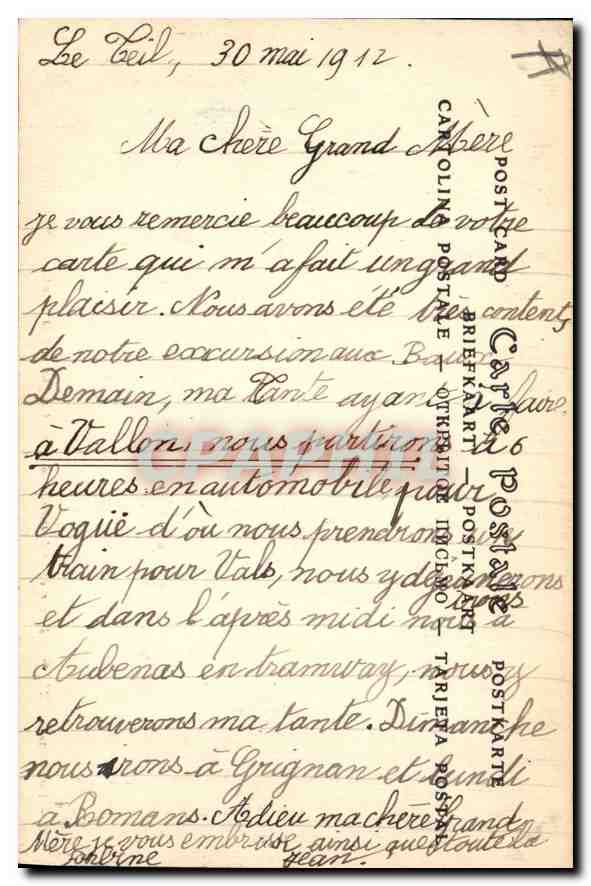 Le Teil, 30 mai 1912.
Ma chère Grand Mère
je vous remercie beaucoup de votre
carte qui m'a fait un grand
plaisir. Nous avons été très contents
de notre exxcursion aux
Demain, ma Tante ayant à faire
à Vallon, nous partirons à 6
heures en automobile pour
Vogüé d'où nous prendrons un
train pour Vals, nous y déjeunerons
et dans l'après midi nous irons à
Aubenas en tramway, nous y
retrouverons ma tante. Dimanche
nous irons à Grignan et lundi
à Romans. Adieu ma chère Grand
Mère je vous embrasse ainsi que toute la
Jean.
POST CARD Carte Postale POSTKARTE
BRIEFKAART — POSTKAART
CARTOLINA POSTALE — ОТКРЫТОЕ ПИСЬМО — TARJETA POSTAL
CPAPHIL